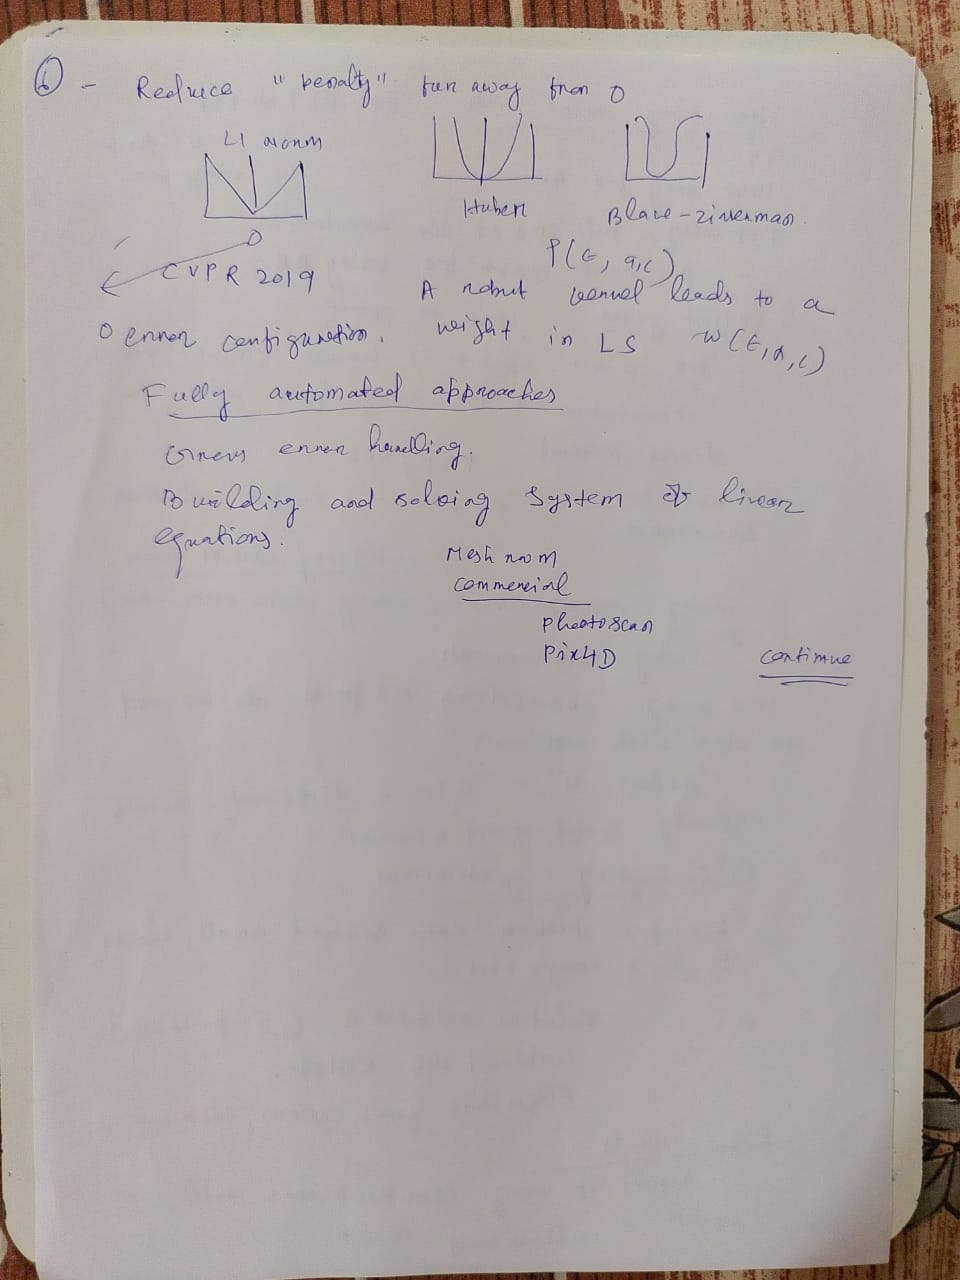 6 - Reduce "penalty" far away from 0
L1 norm
Huber
Blake-zisserman
CVPR 2019
ρ(ε, α,c)
A robust kernel leads to a
0 error configuration. weight in LS w(ε,α,c)
Fully automated approaches
Gross error handling.
Building and solving system of linear
equations.
Mesh room
commercial
photoscan
Pix4D
continue